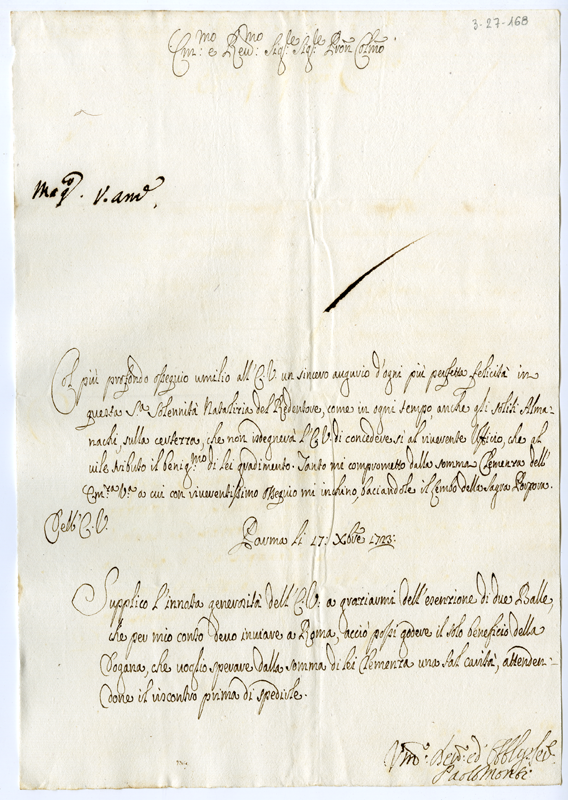 3-27-168
Em:mo e Rev:mo Sig:e Sig:e Pron Colmo
Mag.co V. And.
Col più profondo osseguio umilio all'E.V. un sincero augurio d'ogni più perfetta felicità in
questa Sa. Solennità Natalizia del Redentore, come in ogni tempo anche gli soliti Alma-
nachi, sulla certezza, che non isdegnerà l'E.V. di concedere sì al riverente Ufficio, che al
vile tributo il benig:mo di lei gradimento. Tanto mi comprometto dalla somma Clemenza dell'
Em:za V:a a cui con riverentissimo osseguio mi inchino, baciandole il Lembo della Sagra Porpora.
Dell'E.V.
Parma li 17: Xbre 1723:
Supplico l'innata generosità dell'E.V: a graziarmi dell'esenzione di due Balle,
che per mio conto devo inviare a Roma, acciò possi godere il solo beneficio della
Dogana, che voglio sperare dalla somma di lei Clemenza una tal carità, attenden-
done il riscontro prima di spedirle.
Vmo: Devmo: ed Obblmo Ser.
Paolo Monti